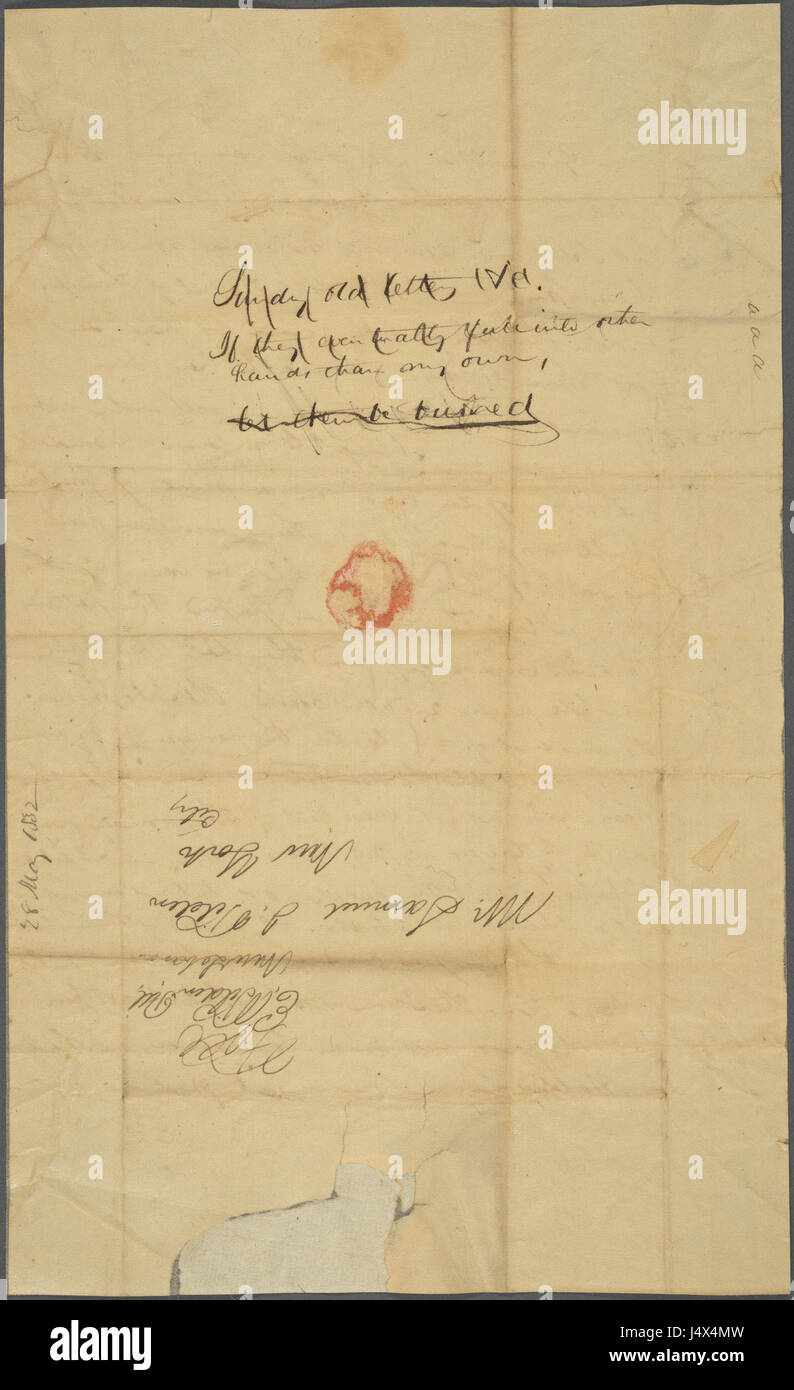 Sundry old letters &c.
If they eventually fall into other
hands than my own,
let them be burned
a a a
28 May 1832
Mr. Samuel J. Tilden
New York
City
E. Tilden
New Lebanon
alamy
alamy
alamy
alamy stock photo
J4X4MW
www.alamy.com